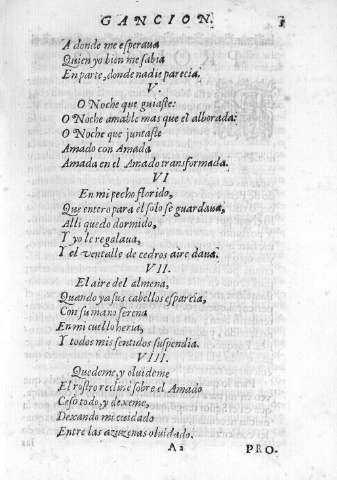 CANCION.
A donde me esperaua
Quien yo bien me sabia
En parte, donde nadie parecia.
V.
O Noche que guiaste:
O Noche amable mas que el alborada:
O Noche que juntaste
Amado con Amada
Amada en el Amado transformada.
VI
En mi pecho florido,
Que entero para el solo se guardaua,
Alli quedo dormido,
Y yo le regalaua,
Y el ventalle de cedros aire daua.
VII.
El aire del almena,
Quando ya sus cabellos esparcia,
Con su mano serena
En mi cuello heria,
Y todos mis sentidos suspendia.
VIII.
Quedeme, y oluideme
El rostro recliné sobre el Amado
Cesó todo, y dexeme,
Dexando mi cuidado
Entre las azuzenas oluidado.
A2 PRO.